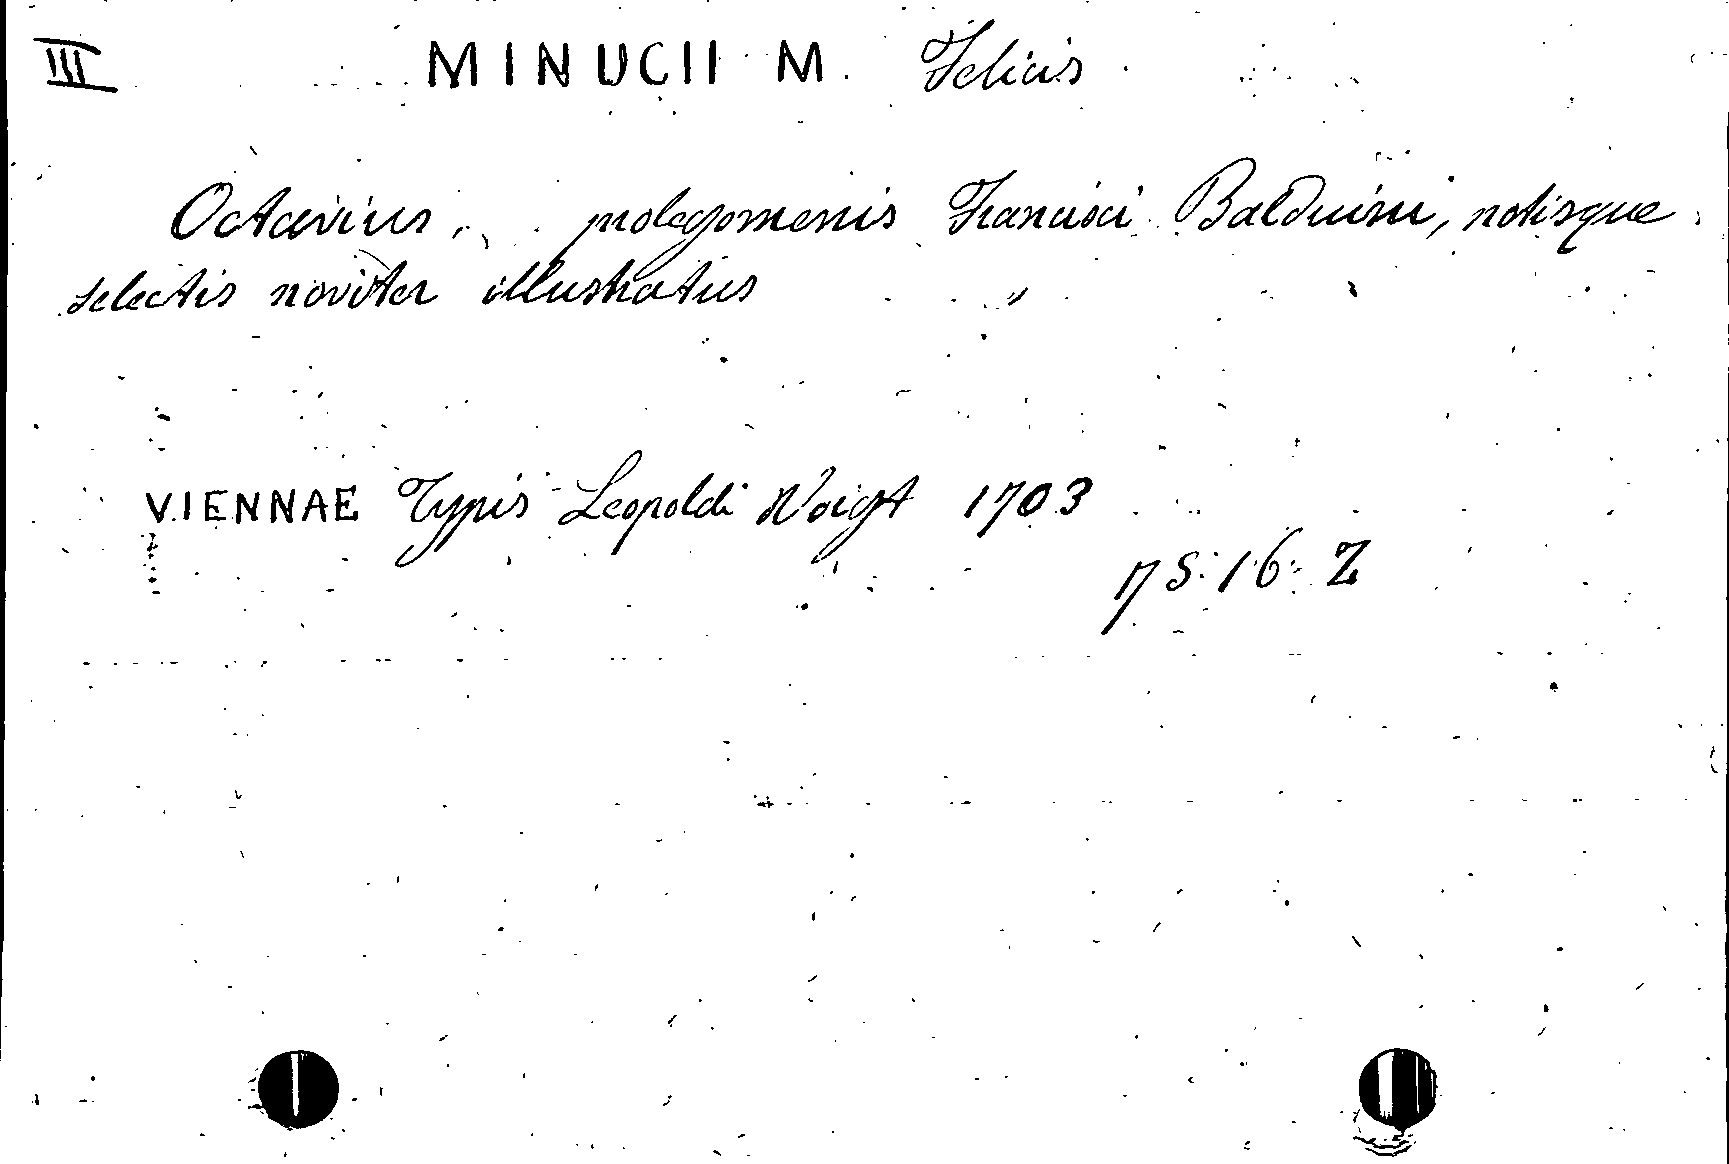 III MINUCII M. Felicis
Octavius, prolegomenis Francisci Balduini, notisque
selectis noviter illustratus
VIENNAE Typis Leopoldi Voigt 1703
75. 16. Z